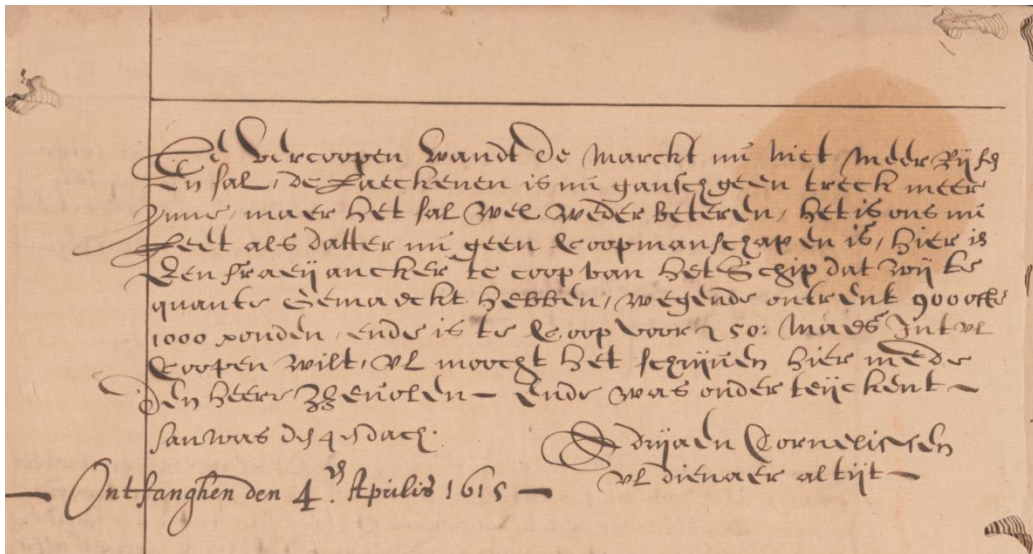 Te vercoopen wandt de marckt nu niet meer rijsen
en sal, de Laeckenen is nu gansch geen treck meer
inne, maer het sal wel weder beteren, het is ons nu
leet als datter nu geen Coopmanschap en is, hier is
een fraeij ancker te coop van het Schip dat wij te
quante gemaeckt hebben, wegende ontrent 900 offte
1000 ponden, ende is te Coop voor 50: maes Int ul
Coopen wilt, ul moocht het schrijven hier mede
den heere bevolen – Ende was onderteijckent –
den 4en dach.
Adrijaen Cornelissen
ul dienaer altijt –
– Ontfanghen den 4en. Aprilis 1615 –